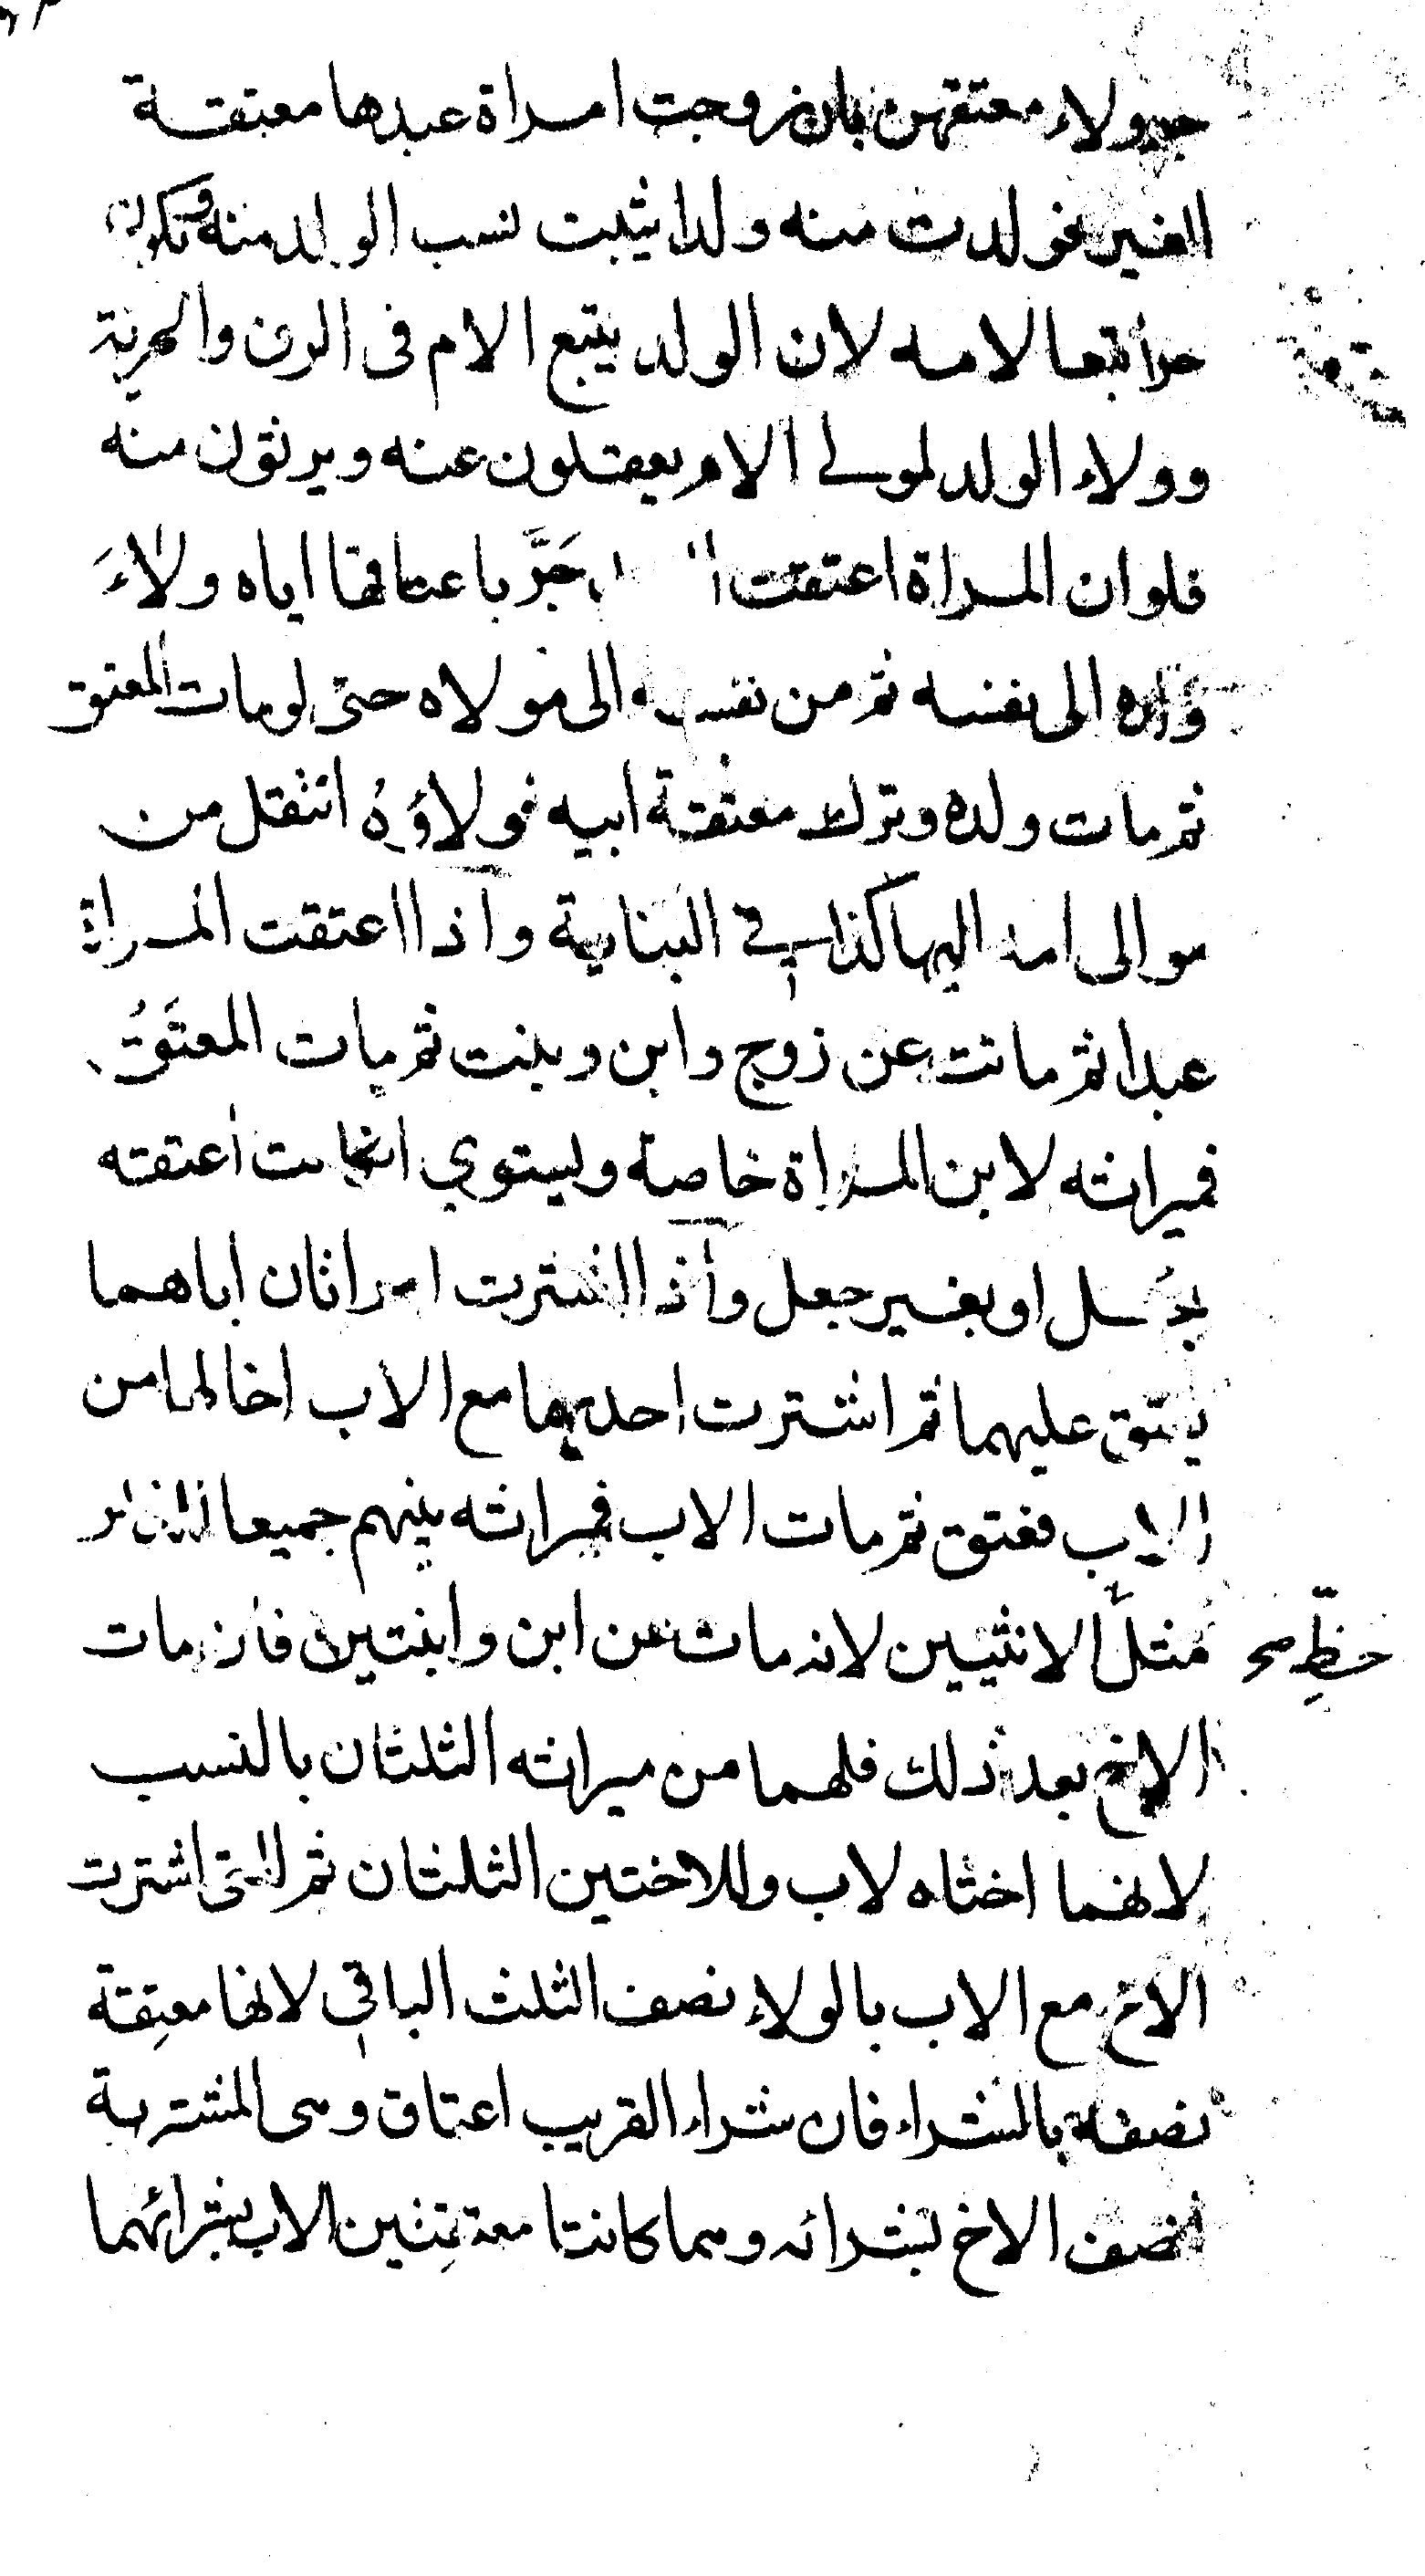 جر ولاء معتقهن بان زوجت امراة عبدها معتقة
الغير فولدت منه ولدا يثبت نسب الولد منه ويكون
حرا تبعا لامه لان الولد يتبع الام فى الرق والحرية
وولاء الولد لمولى الام يعقلون عنه ويرثون منه
فلو ان المراة اعتقت جَرَّ باعتاقها اياه ولاءَ
ولده الى نفسه ثم من نفسه الى مولاه حتى لو مات المعتق
ثم مات ولده وترك معتقة ابيه فولاؤهُ انتقل من
موالى امه اليها كذا في البناية واذا اعتقت المراة
عبدا ثم ماتت عن زوج وابن وبنت ثم مات المعتَقُ
فميراثه لابن المراة خاصة ويستوي ان كانت اعتقته
بجُعل او بغير جعل واذا اشترت امراتان اباهما
يعتق عليهما ثم اشترت احديهما مع الاب اخا لهما من
الاب فعتق ثم مات الاب فميراثه بينهم جميعا للذكر
مثلُ الانثيين لانه مات عن ابن وابنتين فان مات
حظِّ صح
الاخ بعد ذلك فلهما من ميراثه الثلثان بالنسب
لانهما اختاه لاب وللاختين الثلثان ثم للتى اشترت
الاخ مع الاب بالولاء نصف الثلث الباقي لانها معتِقة
نصفه بالشراء فان شراء القريب اعتاق وهى المشترية
لنصف الاخ بشرائه وهما كانتا معتِقتين الاب بشرائهما